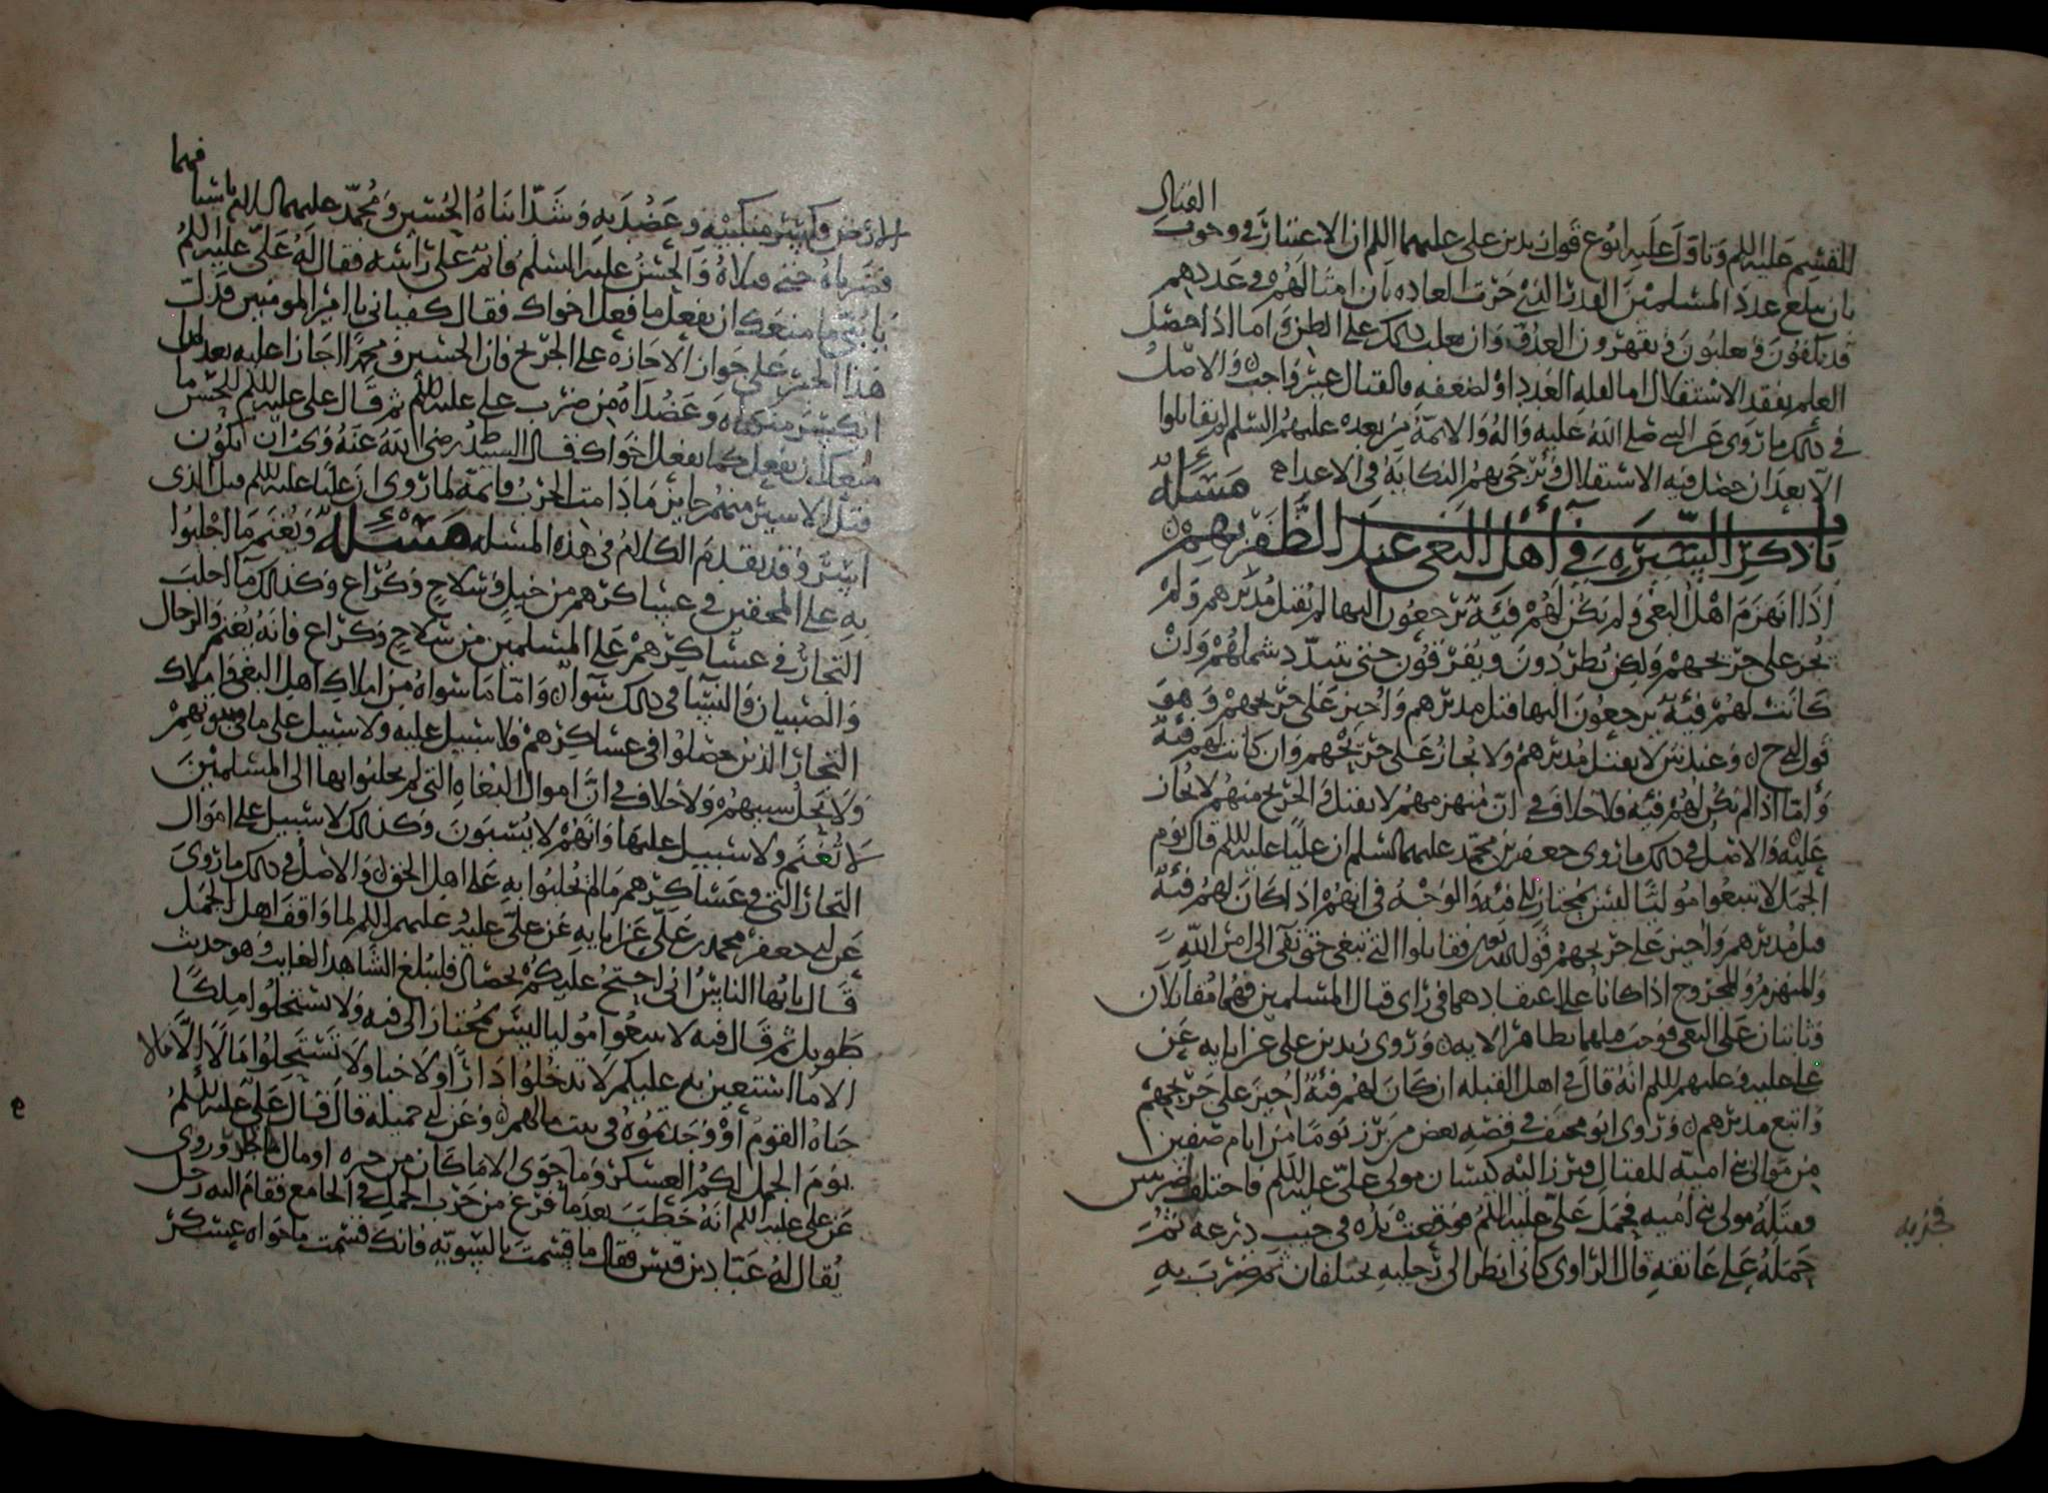 القتال
للقسم عليه السلم وتاول عليه ابو ع قول زيد بن علي عليهما السلم ان الاعتبار في وجوب
بان يبلغ عدد المسلمين القدر الذي جرت العاده بان امثالهم في عددهم
قد يكفون ويغلبون ويقهرون العدو وان يغلب ذلك على الظن واما اذا حصل
العلم بفقد الاستقلال اما لقله العدد او لضعفه فالقتال غير واجب والاصل
في ذلك ما روى عن النبي صلى الله عليه واله والائمة من بعده عليهم السلم لم يقاتلوا
الا بعد ان حصل فيه الاستقلال ويرجى بهم النكاية في الاعداء مسئلة
باب ذكر السيره في اهل البغي عند الظفر بهم
اذا انهزم اهل البغي ولم يكن لهم فئة يرجعون اليها لم يقتل مدبرهم ولم
يجز على جريحهم ولكن يطردون ويفرقون حتى يتبدد شملهم وان
كانت لهم فئة يرجعون اليها قتل مدبرهم واجيز على جريحهم وهو
قول ح وعند ش لا يقتل مدبرهم ولا يجاز على جريحهم وان كانت لهم فئة
واما اذا لم يكن لهم فئة فلا خلاف في ان منهزمهم لا يقتل والجريح منهم لا يجاز
عليه والاصل في ذلك ما روى جعفر بن محمد عليهما السلم ان عليا عليه السلم قال يوم
الجمل لا تتبعوا موليا ليس بمنحاز الى فئة والوجه في انهم اذا كان لهم فئة
قتل مدبرهم واجيز على جريحهم قوله تعالى فقاتلوا التي تبغي حتى تفي الى امر الله
والمنهزم والمجروح اذا كانا على اعتقادهما في راى قتال المسلمين فهما مقاتلان
وثابتان على البغي فوجب قتلهما بظاهر الايه وروى زيد بن علي عن ابايه عن
علي عليه وعليهم السلم انه قال في اهل القبلة ان كان لهم فئة اجيز على جريحهم
واتبع مدبرهم وروى ابو مخنف في قصه بعض من برز يوما من ايام صفين
من موالي بني امية للقتال فبرز اليه كيسان مولى علي عليه السلم فاختلف ضربتين
فقتله مولى بني اميه فحمل علي عليه السلم فوقعت يده في جيب درعه ثم
حمله على عاتقه قال الراوي كاني انظر الى رجليه تختلفان ثم ضرب به
فهما
الارض وكسر منكبيه وعضديه وشد ابناه الحسين ومحمد عليهما السلام باسيا
فضرباه حتى قتلاه والحسن عليه السلم قائم على راسه فقال له علي عليه السلم
يا بني ما منعك ان تفعل ما فعل اخواك فقال كفياني يا امير المومنين فدل
هذا الخبر على جواز الاجازه على الجريح فان الحسين ومحمدا اجازا عليه بعد ان
انكسر منكباه وعضداه من ضرب علي عليه السلم ثم قال علي عليه السلم للحسن ما
منعك ان تفعل كما يفعل اخواك قال السيد ط رضي الله عنه ويجب ان يكون
قتل الاسير منهم جايز ما دامت الحرب قائمة لما روى ان عليا عليه السلم قتل الذي
اسر وقد تقدم الكلام في هذه المسئلة مسئلة ويغنم ما اجلبوا
به على المحقين في عساكرهم من خيل وسلاح وكراع وكذلك ما اجلب
التجار في عساكرهم على المسلمين من سلاح وكراع فانه يغنم والرجال
والصبيان والنساء في ذلك سواء واما ما سواه من املاك اهل البغي واملاك
التجار الذين حصلوا في عساكرهم فلا سبيل عليه ولا سبيل على ما في بيوتهم
ولا يحل سبيهم ولا خلاف في ان اموال البغاه التي لم يجلبوا بها الى المسلمين
لا تغنم ولا سبيل عليها وانهم لا يسبون وكذلك لا سبيل على اموال
التجار التي في عساكرهم ما لم يجلبوا به على اهل الحق والاصل في ذلك ما روى
عن ابي جعفر محمد بن علي عن ابايه عن علي عليه وعليهم السلم لما واقف اهل الجمل
قال يا ايها الناس اني احتج عليكم بخصال فليبلغ الشاهد الغائب وهو حديث
طويل ثم قال فيه لا تتبعوا موليا ليس بمنحاز الى فئه ولا تستحلوا ملكا
الا ما استعين به عليكم لا تدخلوا دارا ولا خبا ولا تستحلوا مالا الا مالا
جباه القوم او وجدتموه في بيت مالهم وعن ابي جميلة قال قال علي عليه السلم
يوم الجمل لكم العسكر وما حوى الا ما كان من حره او مال وروى
عن علي عليه السلم انه خطب بعدما فرغ من حرب الجمل في الجامع فقام اليه رجل
يقال له عباد بن قيس فقال ما قسمت بالسوية فانك قسمت ما حواه عسكر